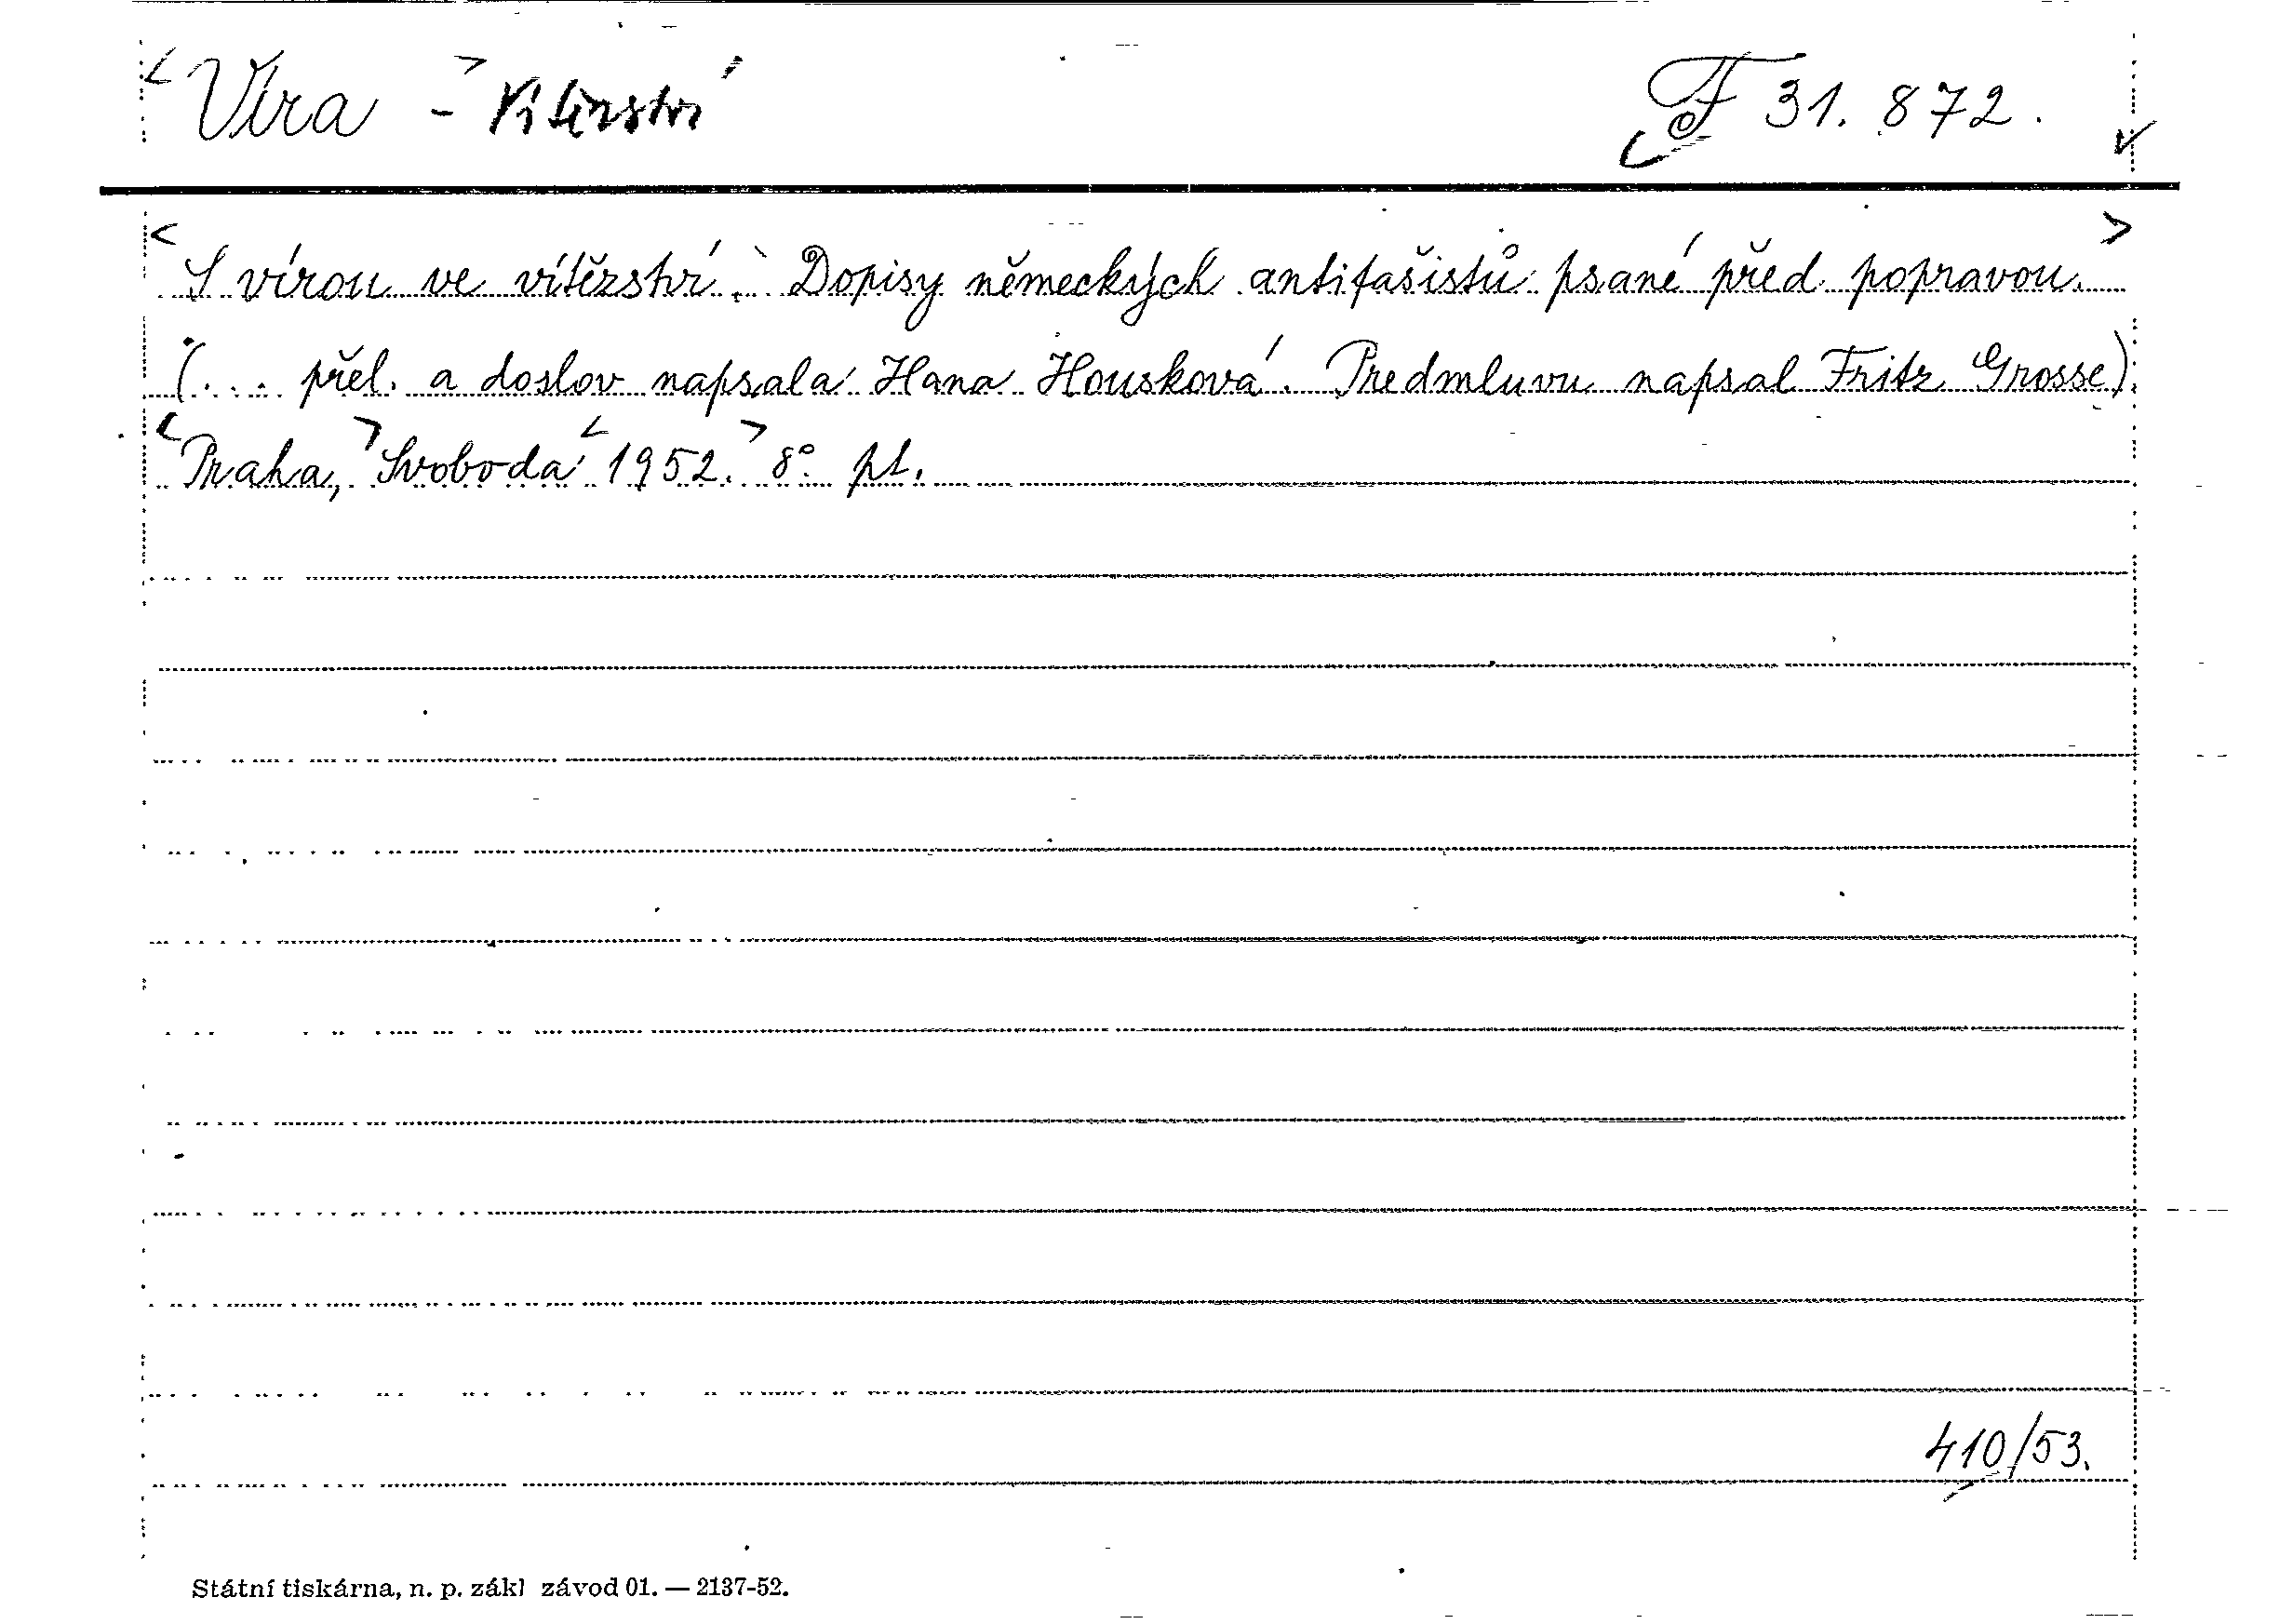 Víra - Vítězství F 31.872.
S vírou ve vítězství. Dopisy německých antifašistů psané před popravou.
(... přel. a doslov napsala Hana Housková. Předmluvu napsal Fritz Grosse)
Praha, Svoboda 1952. 8° pl.
410/53.
Státní tiskárna, n. p. zákl závod 01. — 2137-52.